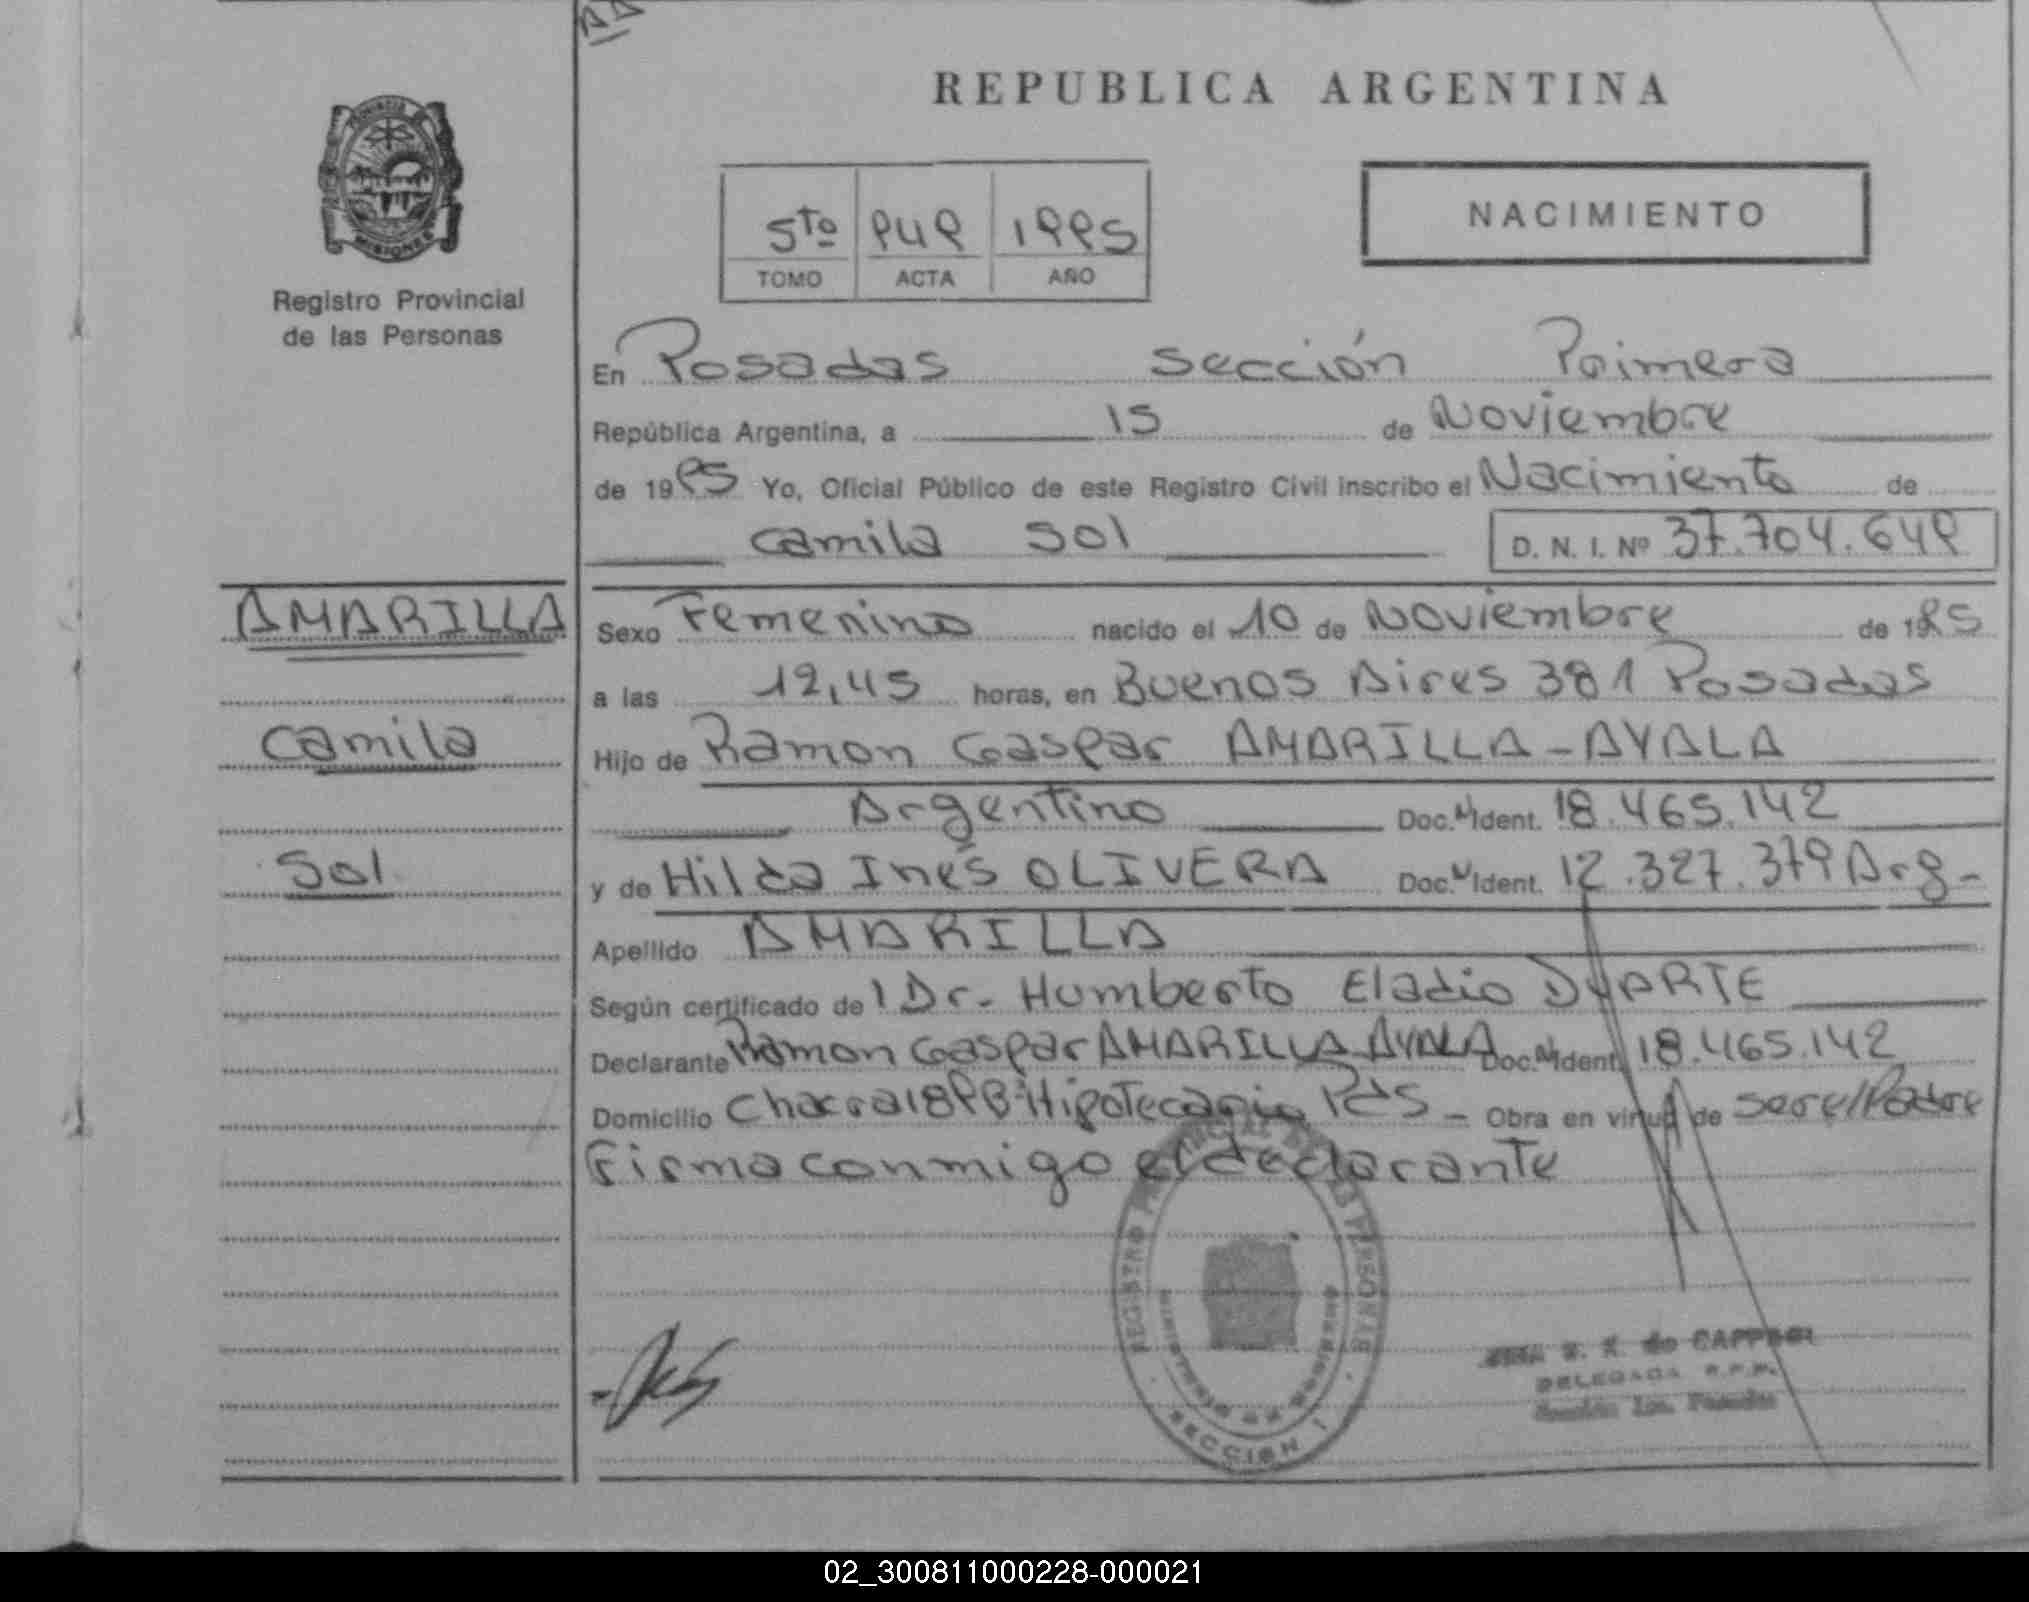 REPUBLICA ARGENTINA
PROVINCIA
MISIONES
Registro Provincial
de las Personas
5to 949 1995
TOMO ACTA AÑO
NACIMIENTO
En Posadas Sección Primera
República Argentina, a 15 de Noviembre
de 1995 Yo, Oficial Público de este Registro Civil inscribo el Nacimiento de
Camila Sol D. N. I. Nº 37.704.649
AMARILLA
Camila
Sol
Sexo Femenino nacido el 10 de Noviembre de 1995
a las 12,45 horas, en Buenos Aires 381 Posadas
Hijo de Ramon Gaspar AMARILLA-AYALA
Argentino Doc. Ident. 18.465.142
y de Hilda Inés OLIVERA Doc. Ident. 12.327.379 Arg-
Apellido AMARILLA
Según certificado de l Dr. Humberto Eladio DUARTE
Declarante Ramon Gaspar AMARILLA AYALA Doc. Ident. 18.465.142
Domicilio Chacra 189 Bº Hipotecario Pdas - Obra en virtud de ser el Padre
Firma conmigo el declarante
REGISTRO PERSONAS
SECCION 1
de CAPPSGI
DELEGADA R.P.P.
Sección 1ra. Posadas
02_300811000228-000021